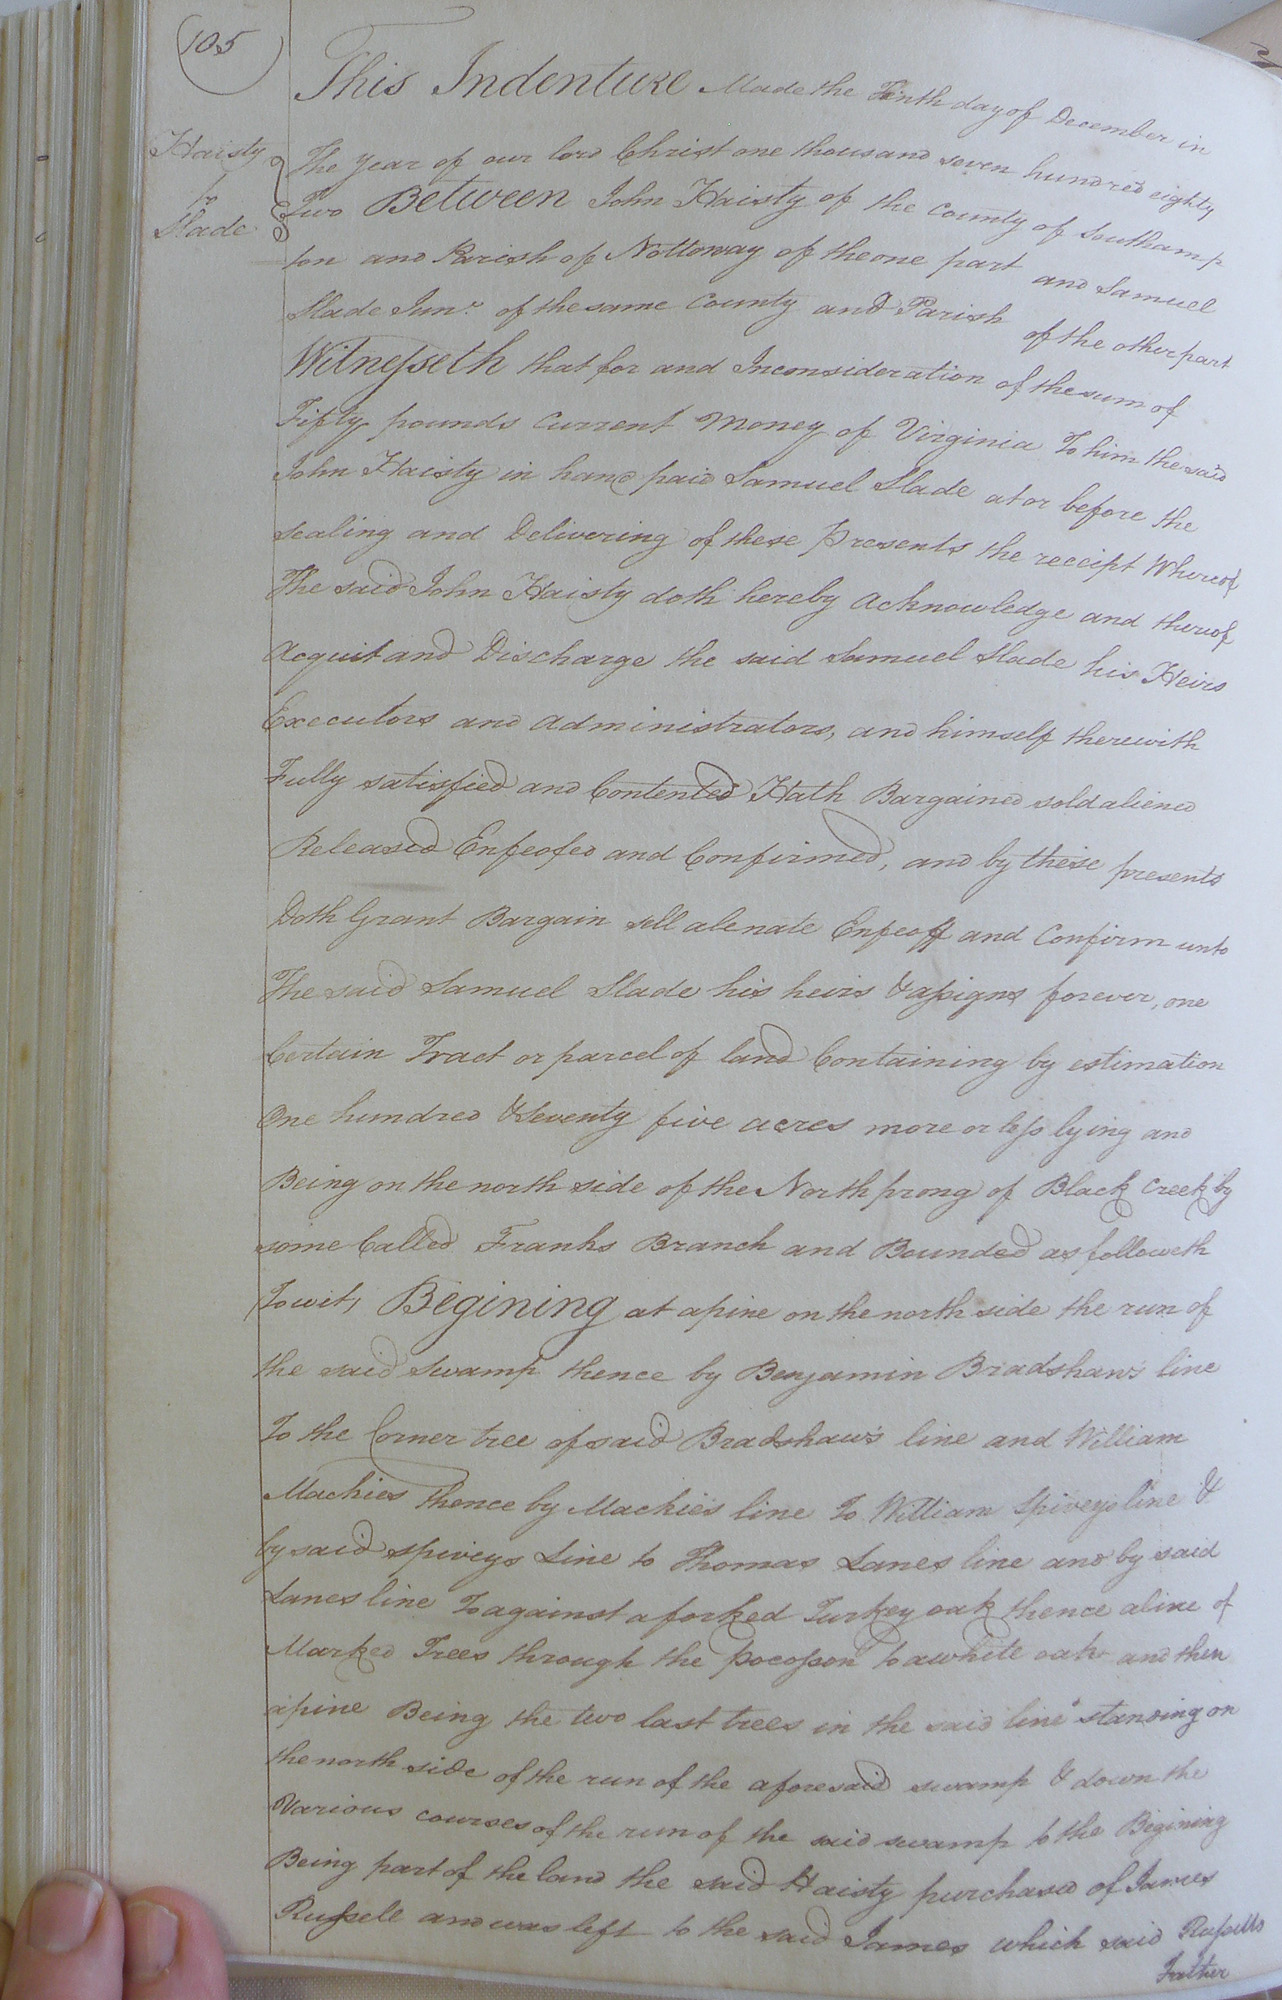 105
Haisty
to
Slade
This Indenture Made the Tenth day of December in
The year of our lord Christ one thousand seven hundred eighty
Two Between John Haisty of the County of Southamp
ton and Parish of Nottoway of the one part and Samuel
Slade Junr. of the same County and Parish of the other part
Witnesseth that for and Inconsideration of the sum of
Fifty pounds Current Money of Virginia To him the said
John Haisty in hand paid Samuel Slade at or before the
sealing and Delivering of these Presents the receipt Whereof
The said John Haisty doth hereby Acknowledge and thereof
Acquit and Discharge the said Samuel Slade his Heirs
Executors and Administrators, and himself therewith
Fully satisfied and Contented Hath Bargained sold aliened
Released Enfeofed and Confirmed, and by these presents
Doth Grant Bargain sell alenate Enfeoff and Confirm unto
The said Samuel Slade his heirs & assigns forever, one
Certain Tract or parcel of land Containing by estimation
One hundred & Seventy five acres more or less lying and
Being on the north side of the North prong of Black Creek by
some Called Franks Branch and Bounded as followeth
(Towit) Begining at a pine on the north side the run of
the said swamp thence by Benjamin Bradshaw's line
To the Corner tree of said Bradshaw's line and William
Mackies thence by Mackie's line To William Spivey's line &
by said spiveys Line to Thomas Lanes line and by said
Lanes line To against a forked Turkey oak thence a line of
Marked Trees through the Pocosson to a white oak and then
a pine Being the two last trees in the said line standing on
the north side of the run of the aforesaid swamp & down the
Various courses of the run of the said swamp to the Begining
Being part of the land the said Haisty purchased of James
Russell and was left to the said James which said Russells
Father